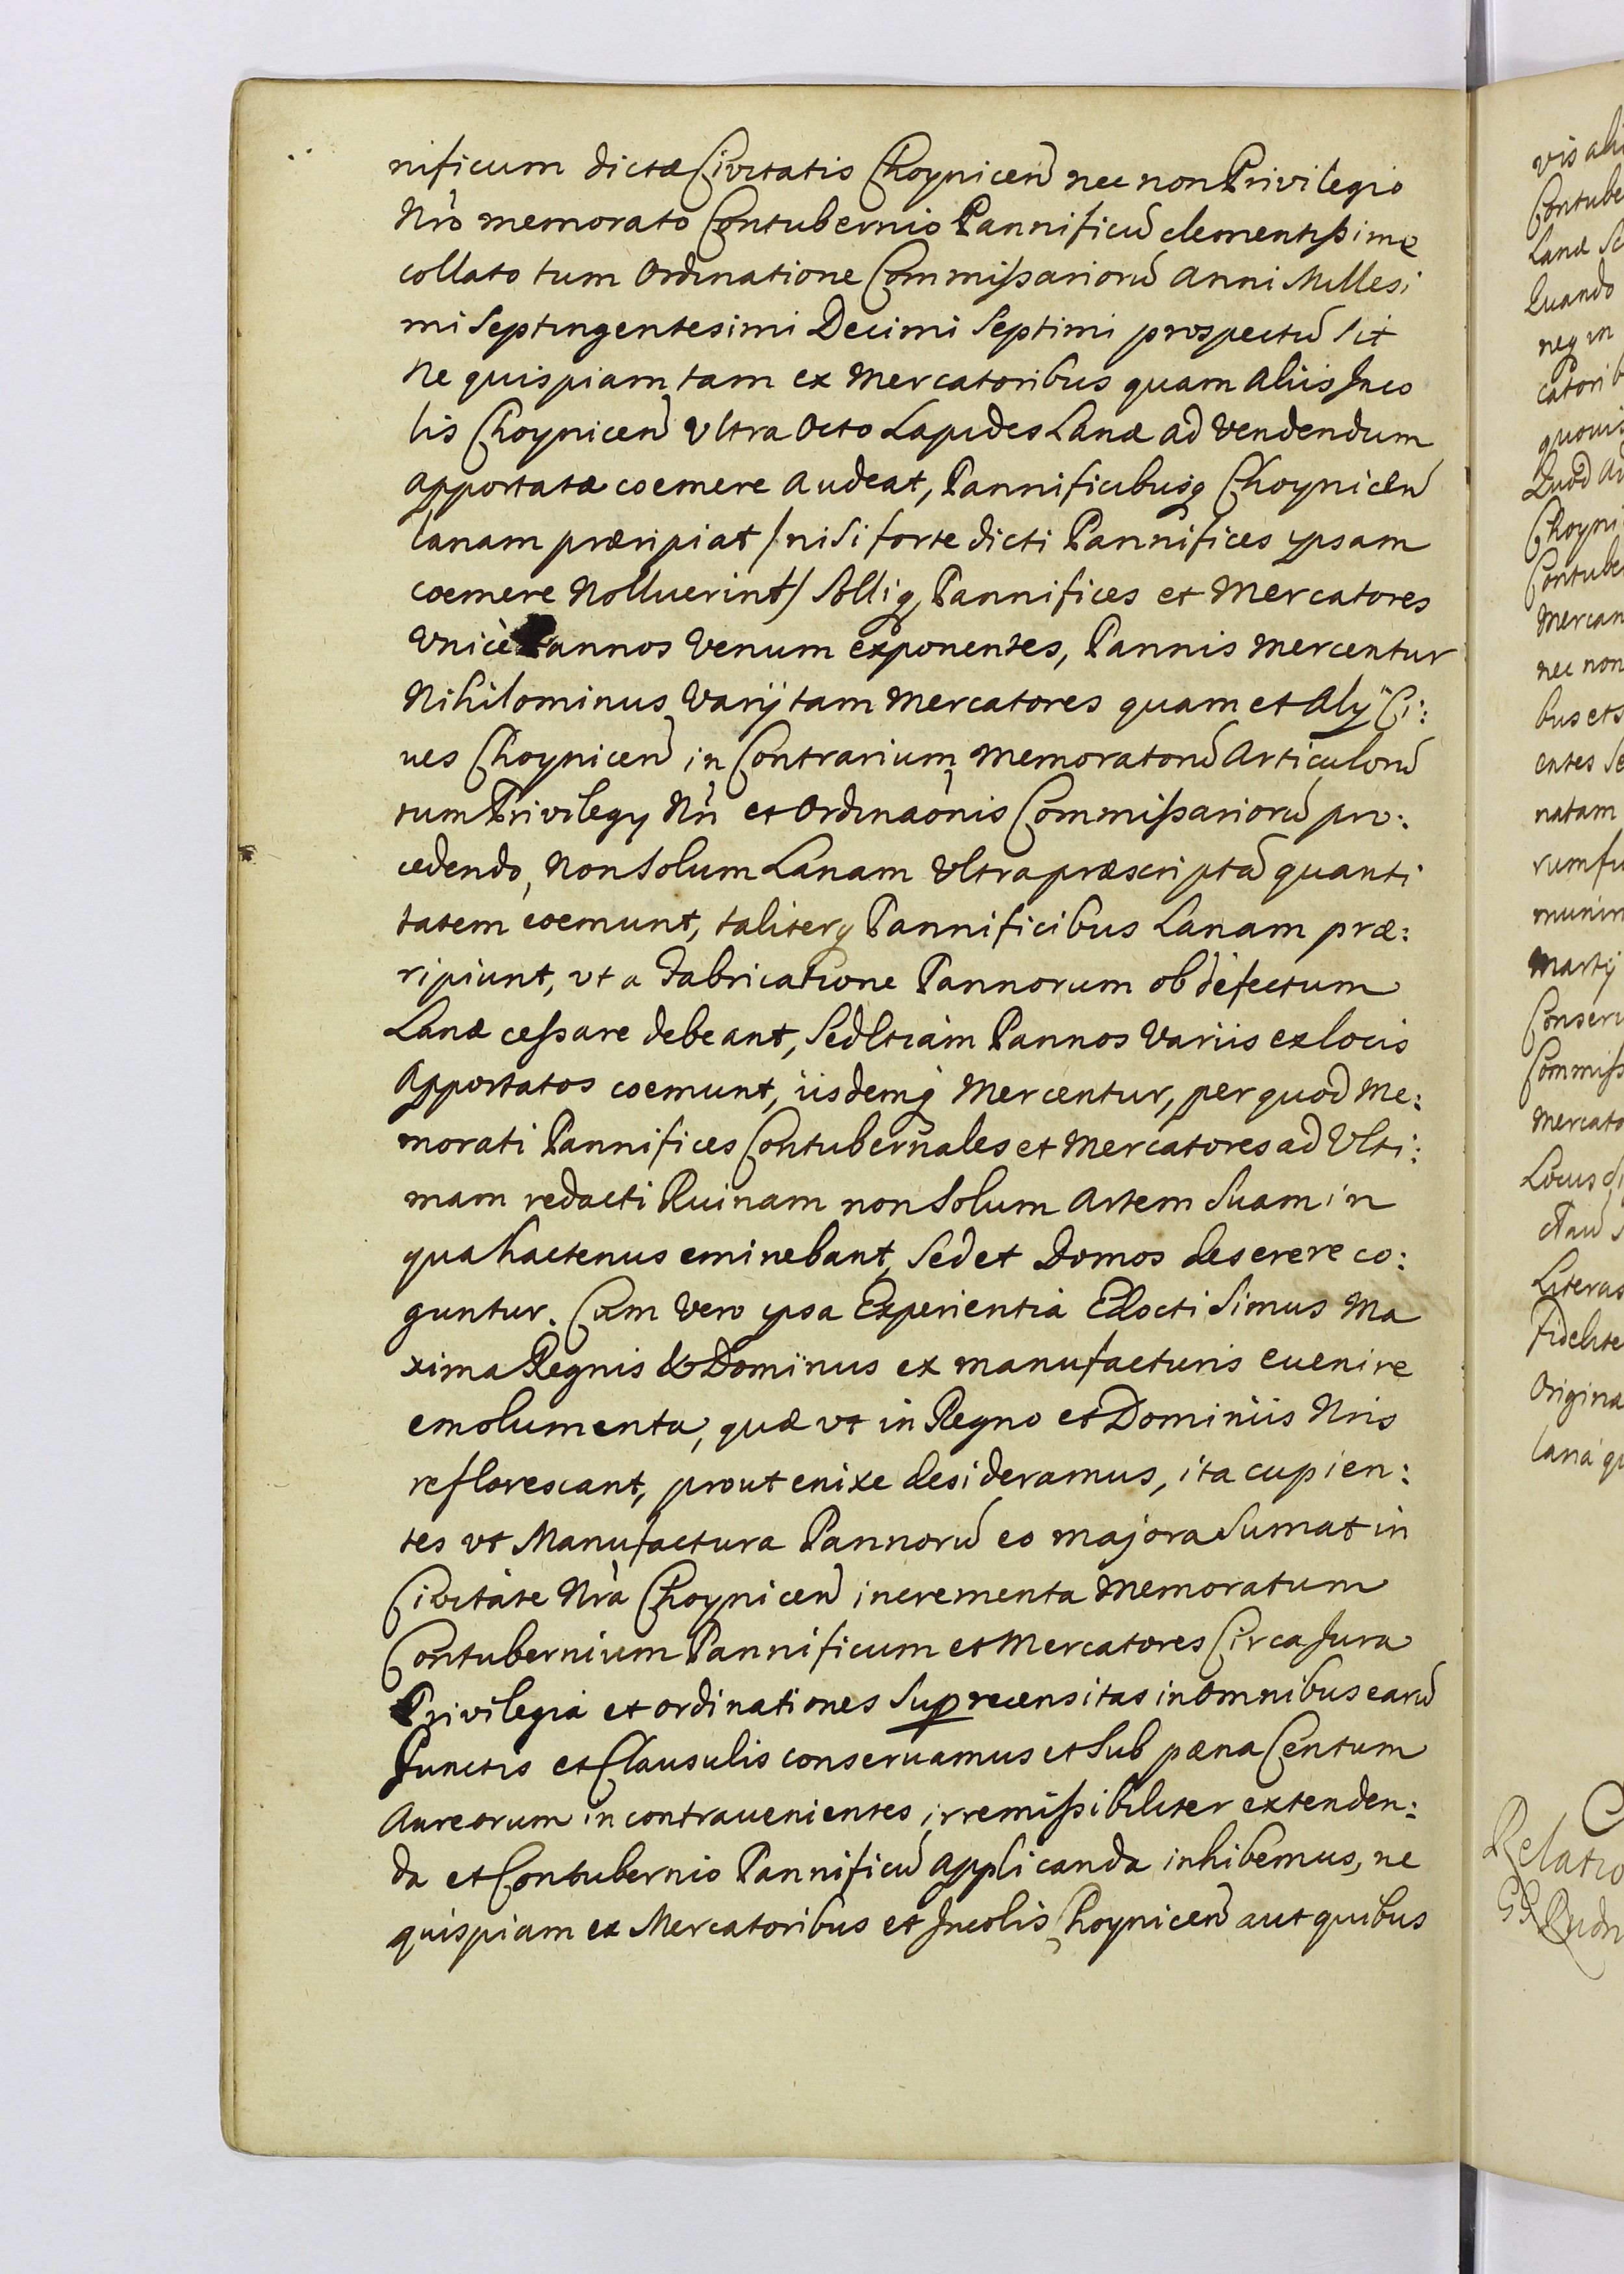 nificum dictæ Civitatis Choynicen̄ nec non Privilegio
Nrò memorato Contubernio Pannificū clementissime
collato tum Ordinatione Commissariorū Anni Millesi
mi Septingentesimi Decimi Septimi prospectū sit
Ne quispiam tam ex Mercatoribus quam Aliis Inco
lis Choynicen̄ Vltra Octo Lapides Lanæ ad Vendendum
Apportatæ coemere Audeat, Pannificibusq Choynicen̄
Lanam præripiat / nisi forte dicti Pannifices ypsam
coemere Nolluerint / Solliq Pannifices et Mercatores
Vnicè Pannos Venum exponentes, Pannis Mercentur
Nihilominus Varÿ tam Mercatores quam et Alÿ Ci:
ues Choynicen̄ in Contrarium Memoratorū Articulorū
tum Privilegy Nri et Ordinaònis Commissariorū pro:
cedendo, Non Solum Lanam Vltra præscriptā quanti
tatem coemunt, taliterq Pannificibus Lanam præ:
ripiunt, vt a Fabricatione Pannorum ob defectum
Lanæ cessare debeant, Sed Etiam Pannos Variis ex locis
Apportatos coemunt, iisdemq Mercentur, per quod Me:
morati Pannifices Contubernales et Mercatores ad Vlti:
mam redacti Ruinam non Solum Artem Suam in
qua hactenus eminebant, Sed et Domos deserere co:
guntur. Cum Vero ypsa Experientia Edocti Simus Ma
xima Regnis & Dominus ex manufacturis euenire
emolumenta, quæ vt in Regno et Dominiis Nris
reflorescant, prout enixe desideramus, ita cupien:
tes vt Manufactura Pannorū eo majora Sumat in
Civitate Nrà Choynicen̄ incrementa Memoratum
Contubernium Pannificum et Mercatores Circa Jura
Privilegia et ordinationes Suprecensitas in Omnibus earū
Punctis et Clausulis conseruamus et Sub pæna Centum
Aureorum in contrauenientes irremissibiliter extenden:
da et Contubernio Pannificū Applicanda inhibemus, ne
quispiam ex Mercatoribus et Incolis Choynicen̄ aut quibus
vis ali
Contube
Lanæ
Quando
neq in
catorib
quouis
Quod Ad
Choyni
Contube
Mercan
nec non
bus et
entes Se
natam
rum fu
munim
Martÿ
Conseru
Commiss
Mercato
Locus
Literas
Fidelite
Origina
Relatio